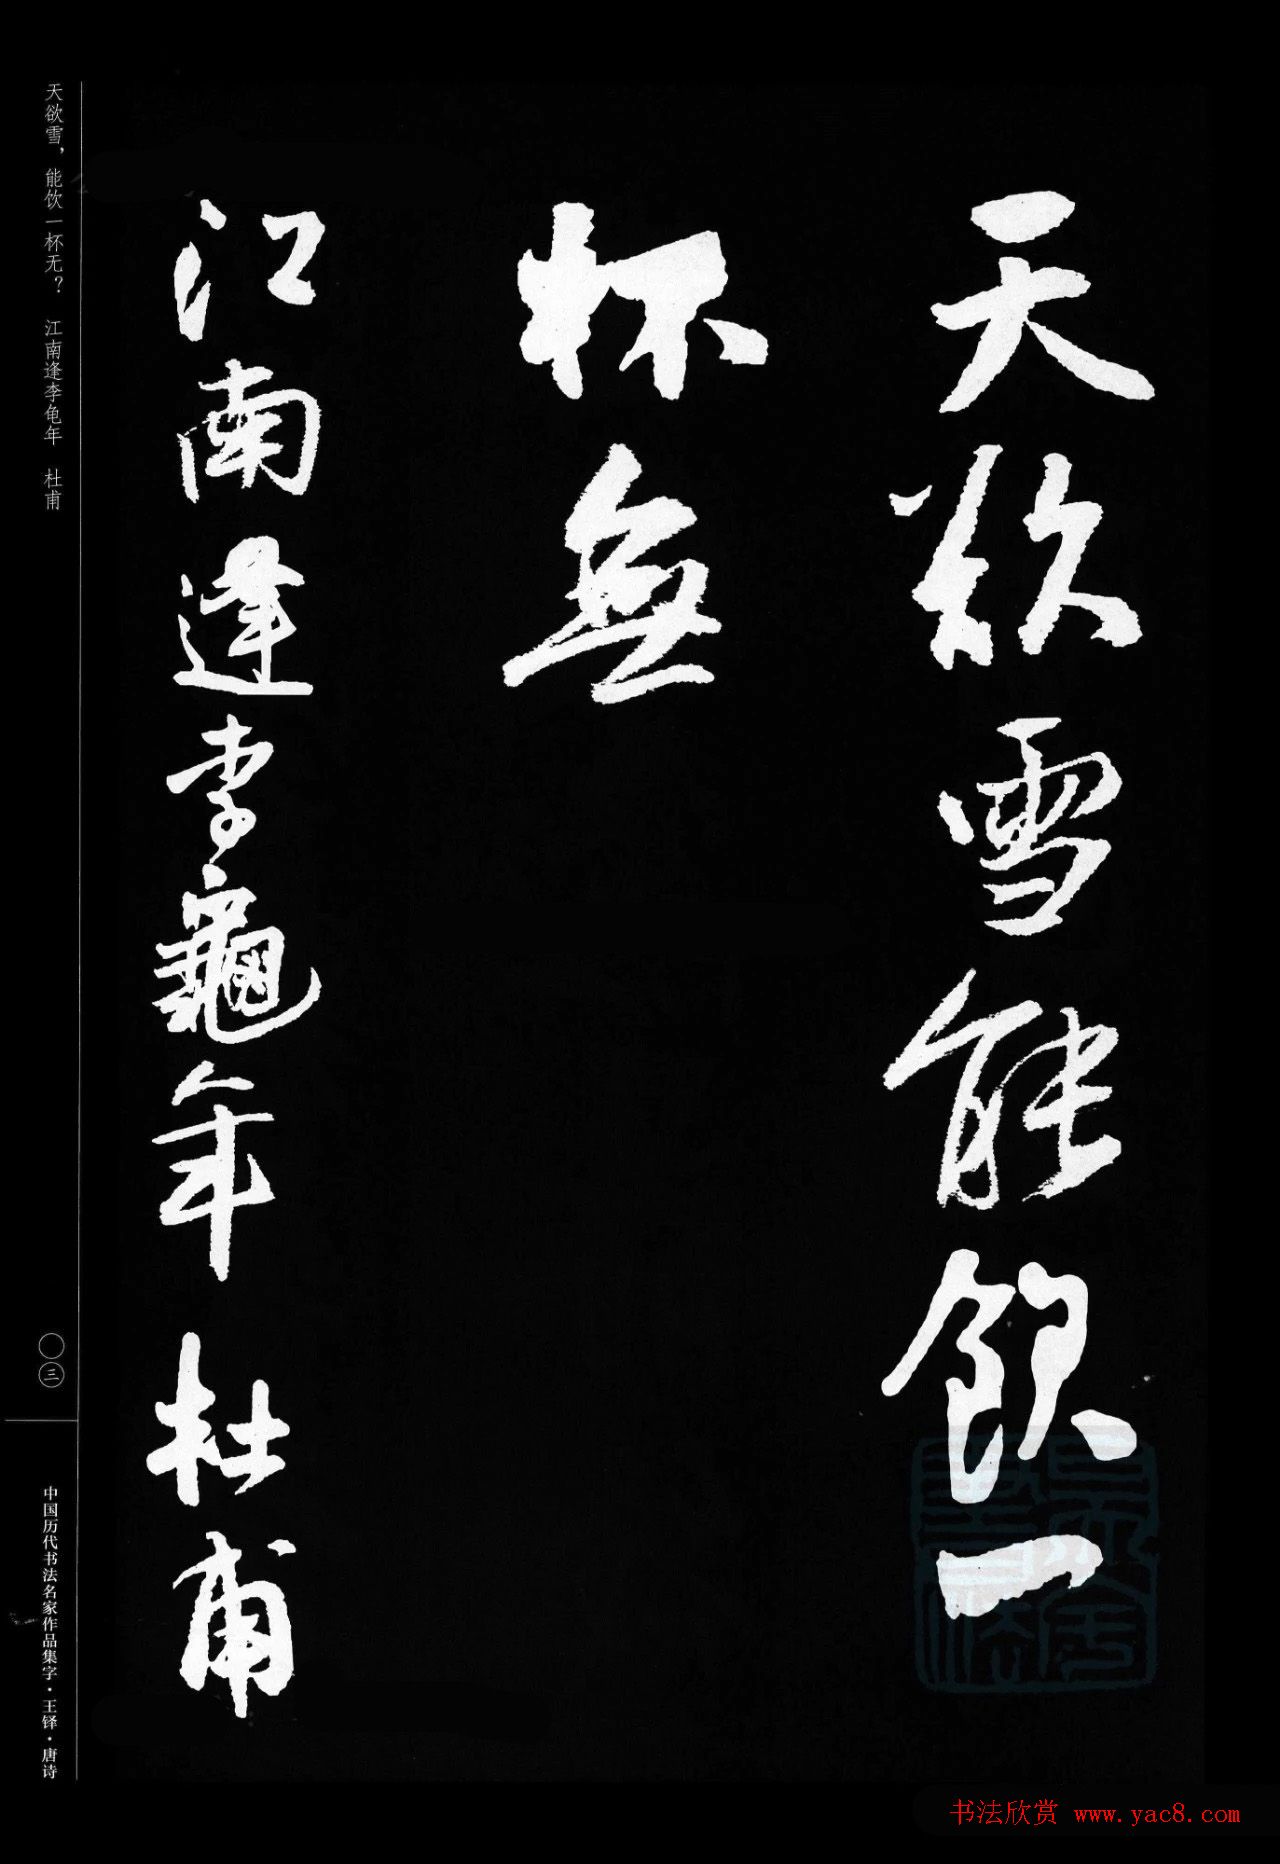 天欲雪能飲一
杯無
江南逢李龜年 杜甫
天欲雪，能饮一杯无？ 江南逢李龟年 杜甫
〇三
中国历代书法名家作品集字·王铎·唐诗
书法欣赏 www.yac8.com